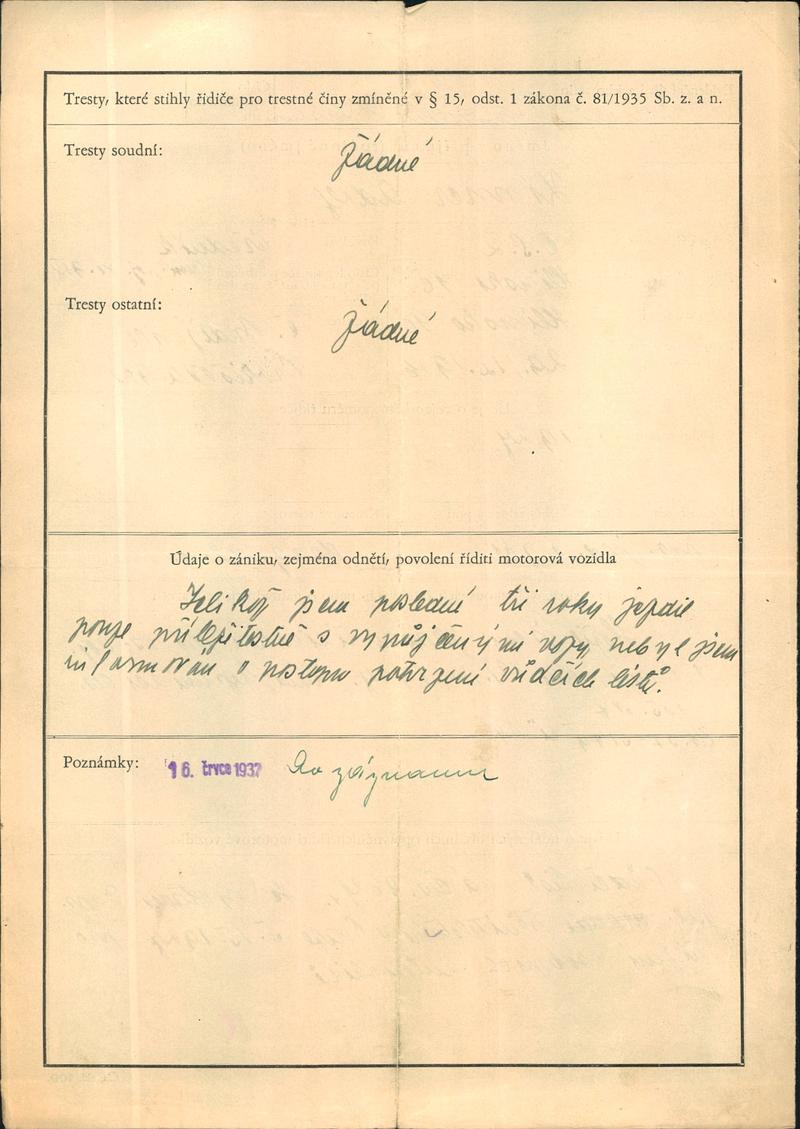 Tresty, které stihly řidiče pro trestné činy zmíněné v § 15, odst. 1 zákona č. 81/1935 Sb. z. a n.
Tresty soudní:
Žádné
Tresty ostatní:
Žádné
Údaje o zániku, zejména odnětí, povolení říditi motorová vozidla
Jelikož jsem poslední tři roky jezdil
pouze příležitostně s vypůjčenými vozy nebyl jsem
informován o postupu potvrzení vůdčích listů.
Poznámky:
16. června 1937
Do záznamu